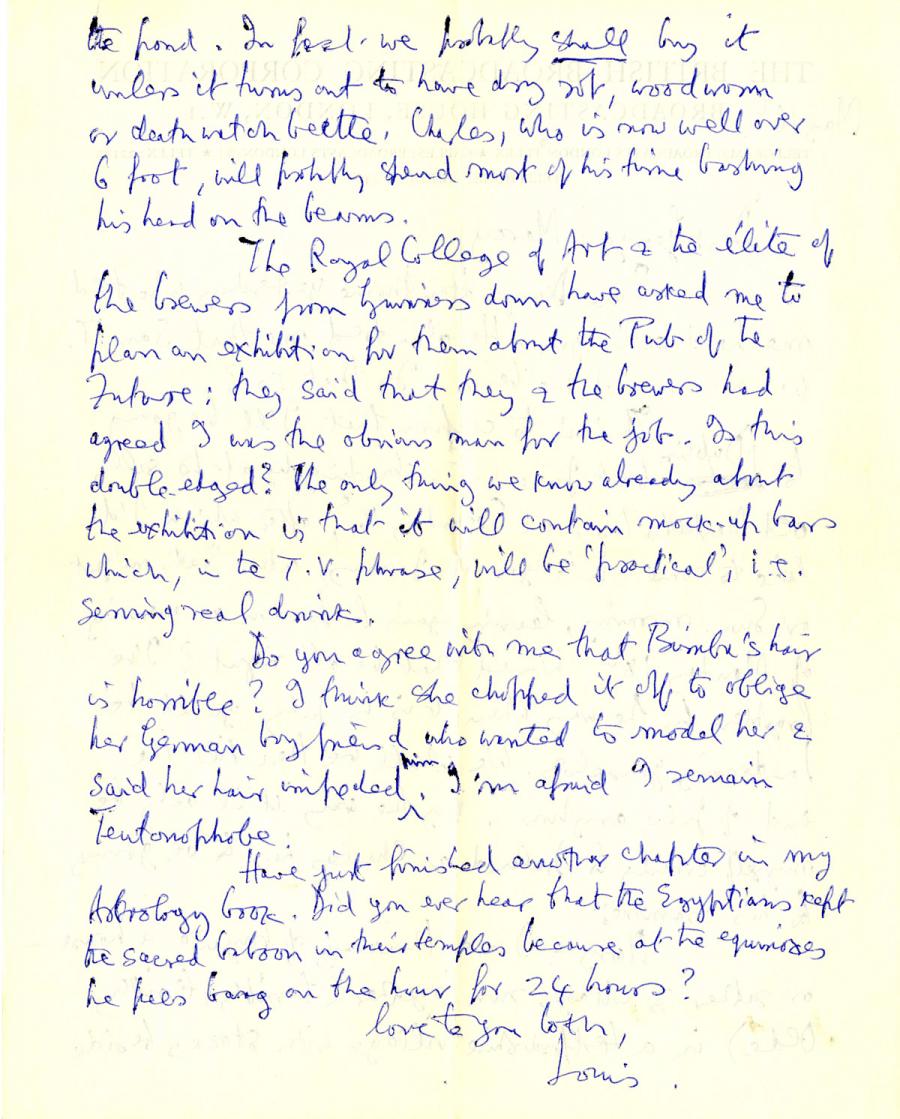 the pond. In fact we probably shall buy it
unless it turns out to have dry rot, woodworm
or death watch beetle. Charles, who is now well over
6 foot, will probably spend most of his time bashing
his head on the beams.
The Royal College of Art & the élite of
the brewers from Guinness down have asked me to
plan an exhibition for them about the Pub of the
Future; they said that they & the brewers had
agreed I was the obvious man for the job. Is this
double-edged? The only thing we know already about
the exhibition is that it will contain mock-up bars
which, in the T.V. phrase, will be 'practical', i.e.
serving real drink.
Do you agree with me that Bimba's hair
is horrible? I think she chopped it off to oblige
her German boy friend who wanted to model her &
said her hair impeded him. I'm afraid I remain
Teutonophobe.
Have just finished another chapter in my
Astrology book. Did you ever hear that the Egyptians kept
the sacred baboon in their temples because at the equinoxes
he pees bang on the hour for 24 hours?
love to you both,
Louis.